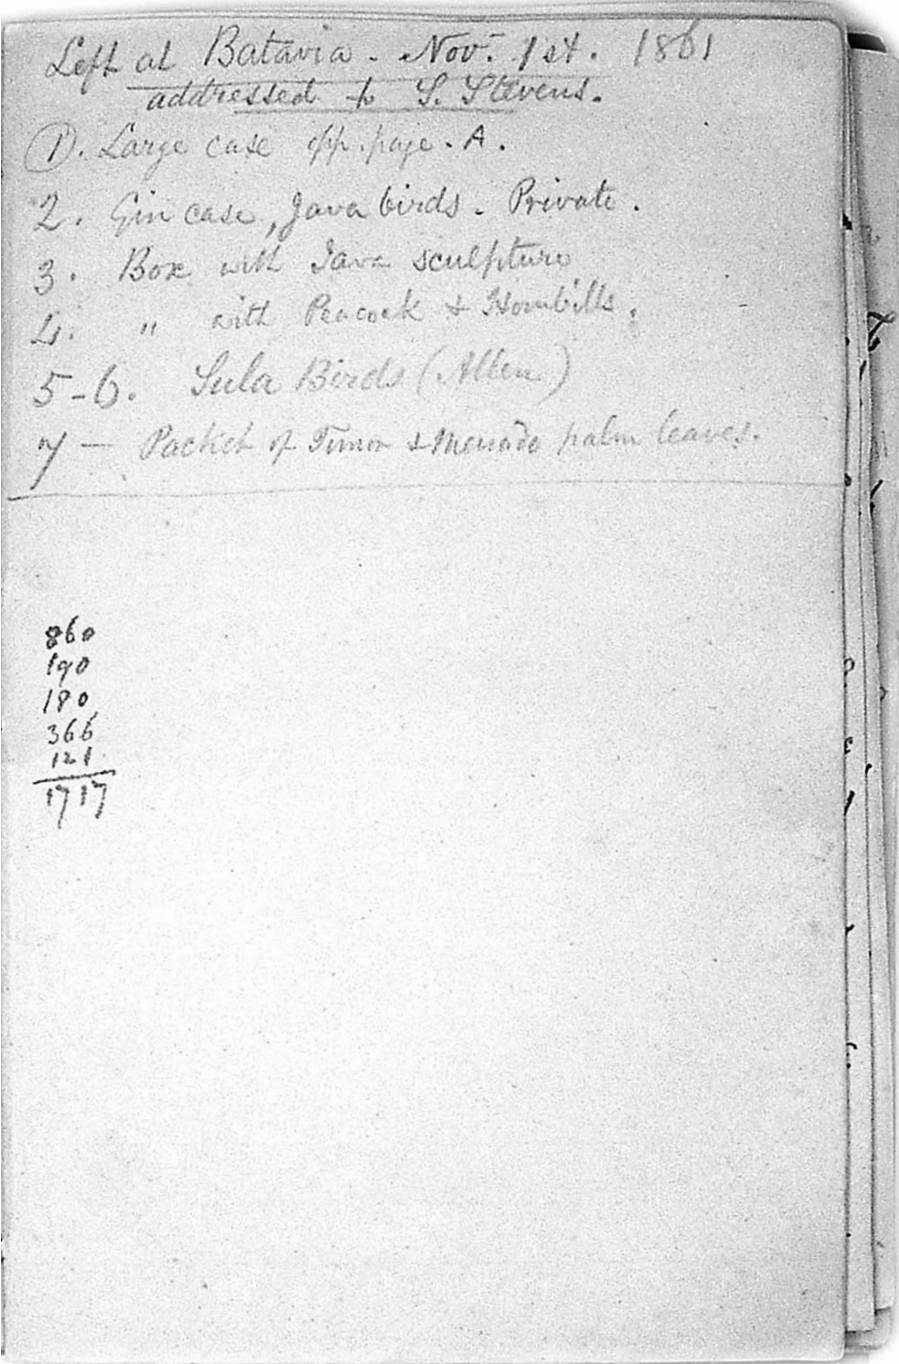 Left at Batavia - Nov. 1st. 1861
addressed to S. Stevens.
1). Large case opp. page. A.
2. Gin case, Java birds. Private.
3. Box with Java sculpture
4. " with Peacock & Hornbills.
5-6. Sula Birds (Allen)
7 — Packet of Timor & Menado palm leaves.
860
190
180
366
121
1717